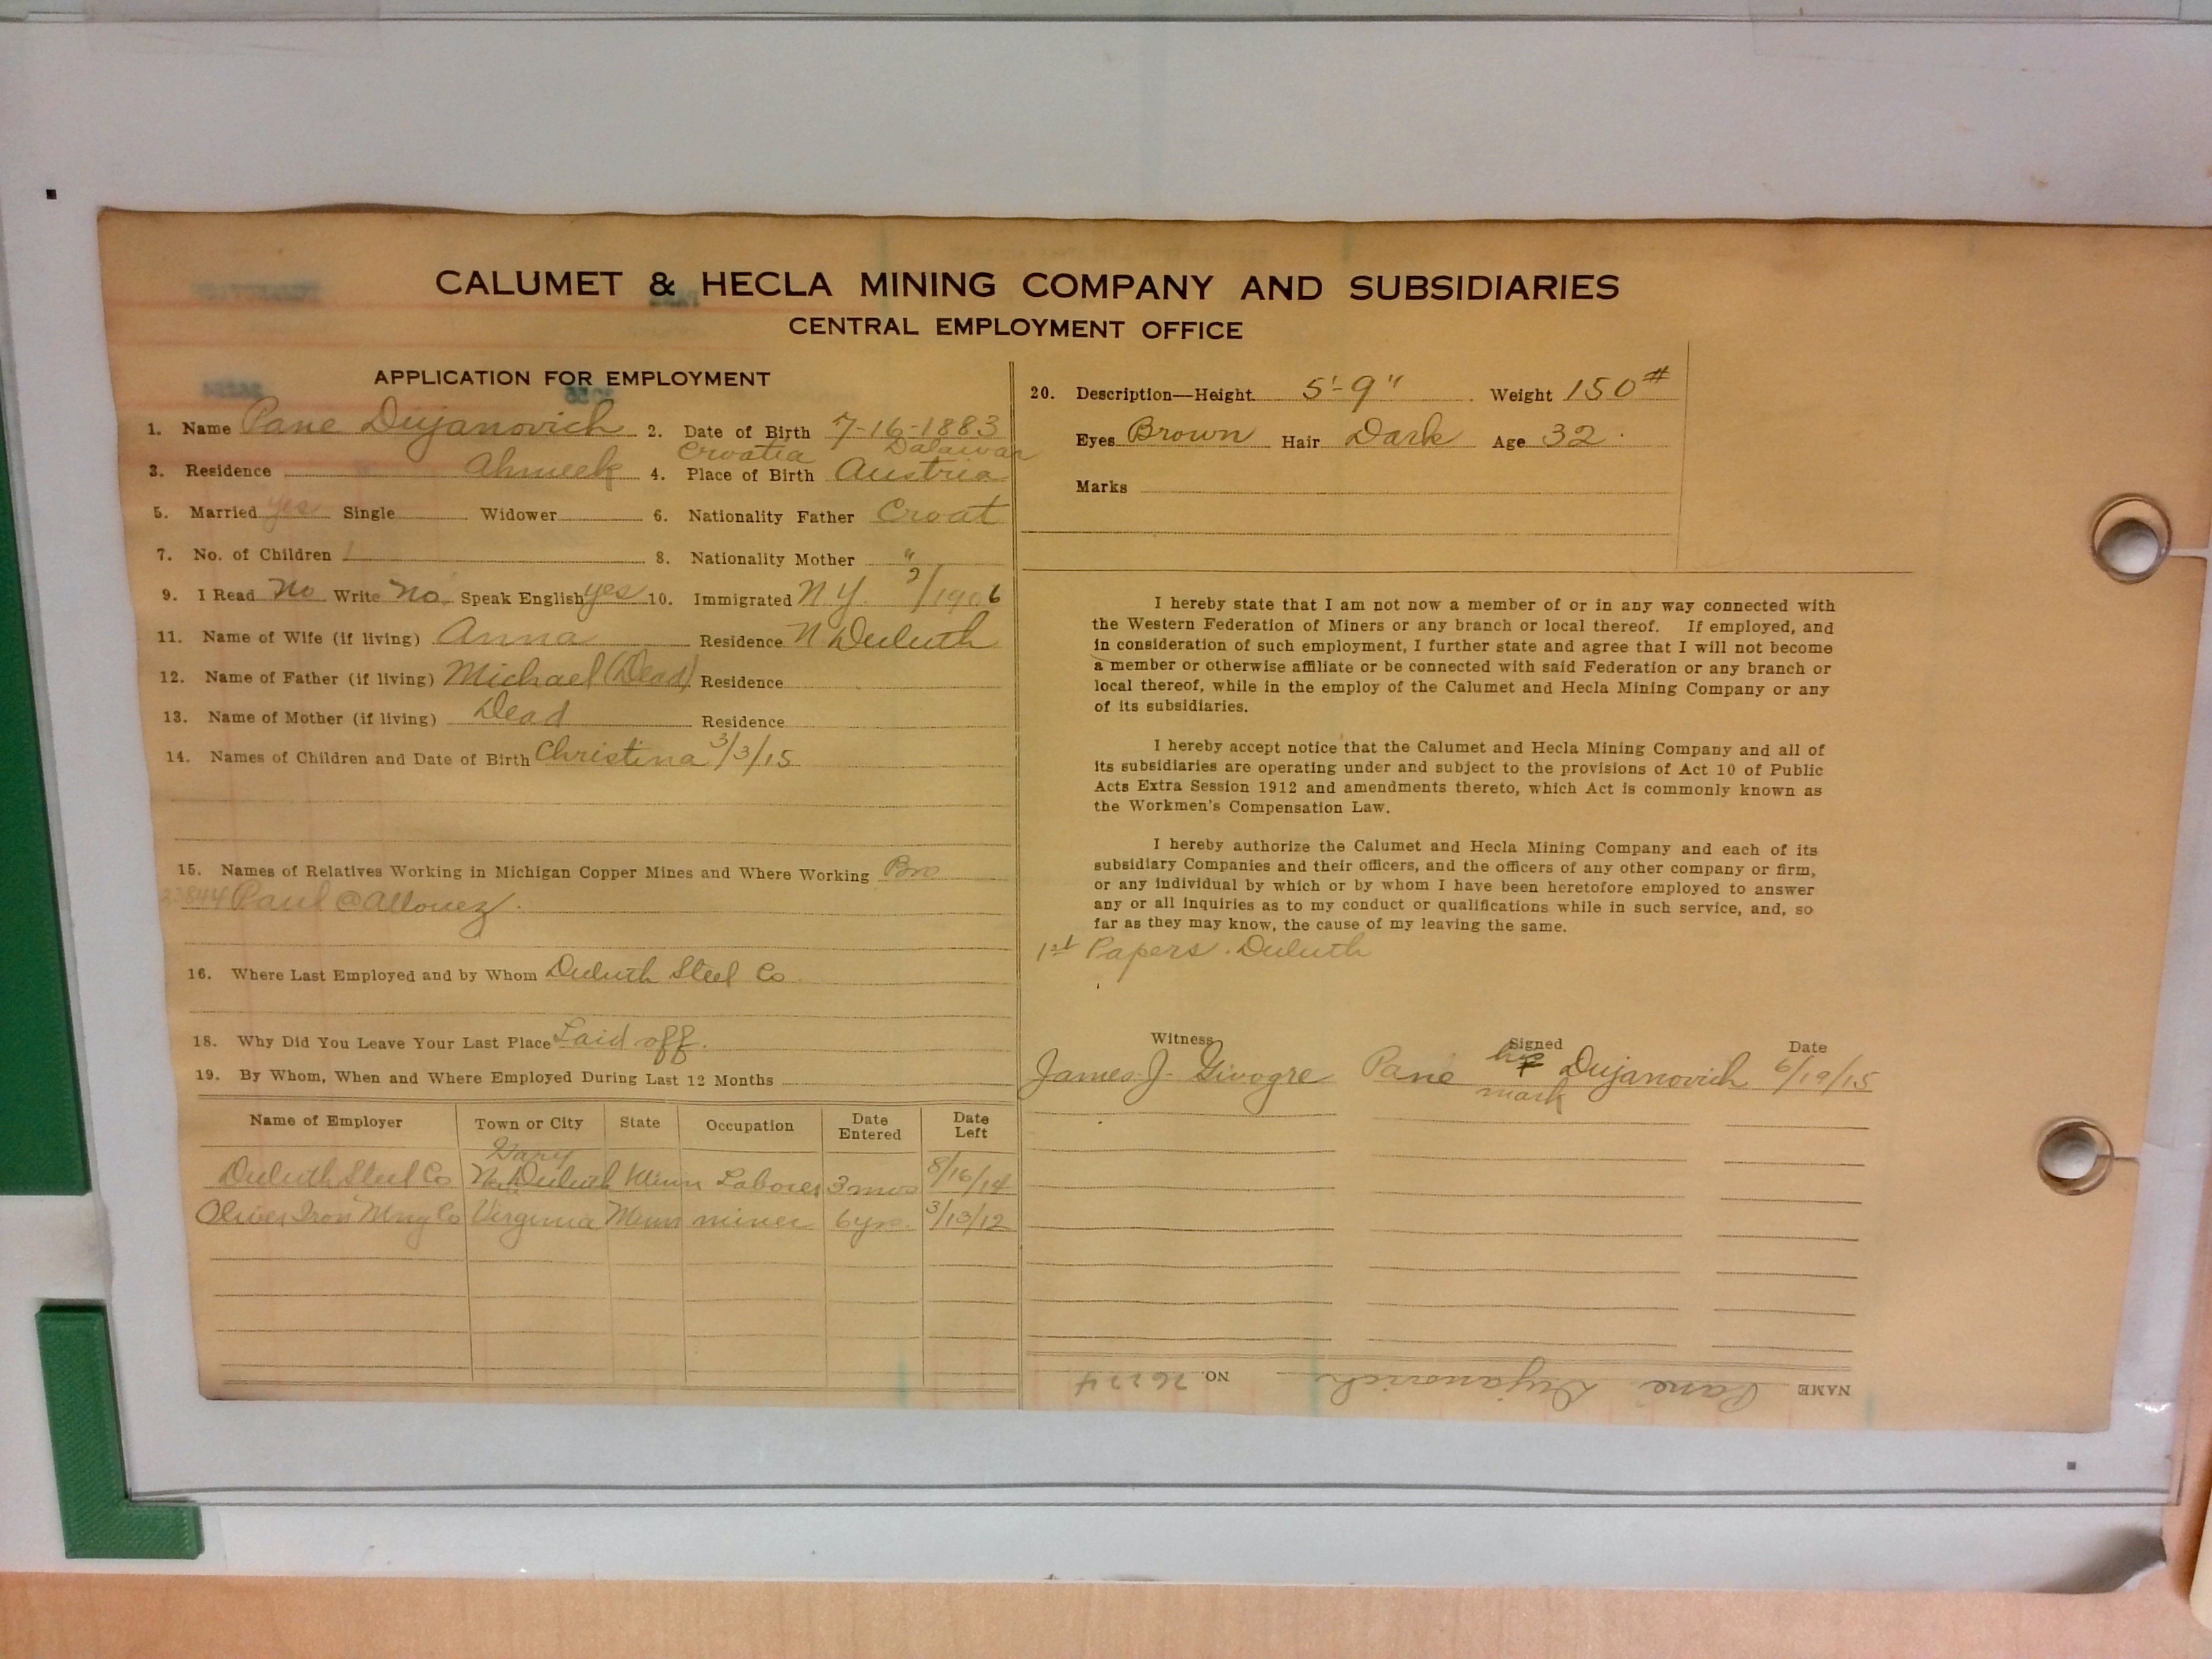 CALUMET & HECLA MINING COMPANY AND SUBSIDIARIES
CENTRAL EMPLOYMENT OFFICE
APPLICATION FOR EMPLOYMENT
1. Name Pane Dujanovich 2. Date of Birth 7-16-1883
Croatia
3. Residence Ahmeek 4. Place of Birth Austria
5. Married yes Single Widower 6. Nationality Father Croat
7. No. of Children 1 8. Nationality Mother "
9. I Read No Write No Speak English yes 10. Immigrated N.Y. /1906
11. Name of Wife (if living) Anna Residence N Duluth
12. Name of Father (if living) Michael (Dead) Residence
13. Name of Mother (if living) Dead Residence
14. Names of Children and Date of Birth Christina 3/3/15
15. Names of Relatives Working in Michigan Copper Mines and Where Working Bro
23844 Paul @ Allouez.
16. Where Last Employed and by Whom Duluth Steel Co
18. Why Did You Leave Your Last Place Laid off.
19. By Whom, When and Where Employed During Last 12 Months
Name of Employer Town or City State Occupation Date Entered Date Left
Gary
Duluth Steel Co N. Duluth Minn Laborer 3 mos 8/16/14
Oliver Iron Mng Co Virginia Minn miner 6 yrs. 3/13/12
20. Description—Height 5'-9" Weight 150#
Eyes Brown Hair Dark Age 32.
Marks
I hereby state that I am not now a member of or in any way connected with
the Western Federation of Miners or any branch or local thereof. If employed, and
in consideration of such employment, I further state and agree that I will not become
a member or otherwise affiliate or be connected with said Federation or any branch or
local thereof, while in the employ of the Calumet and Hecla Mining Company or any
of its subsidiaries.
I hereby accept notice that the Calumet and Hecla Mining Company and all of
its subsidiaries are operating under and subject to the provisions of Act 10 of Public
Acts Extra Session 1912 and amendments thereto, which Act is commonly known as
the Workmen's Compensation Law.
I hereby authorize the Calumet and Hecla Mining Company and each of its
subsidiary Companies and their officers, and the officers of any other company or firm,
or any individual by which or by whom I have been heretofore employed to answer
any or all inquiries as to my conduct or qualifications while in such service, and, so
far as they may know, the cause of my leaving the same.
1st Papers. Duluth
Witness Signed Date
James J. Givogre Pane his Dujanovich 6/19/15
mark
NAME Pane Dujanovich NO.